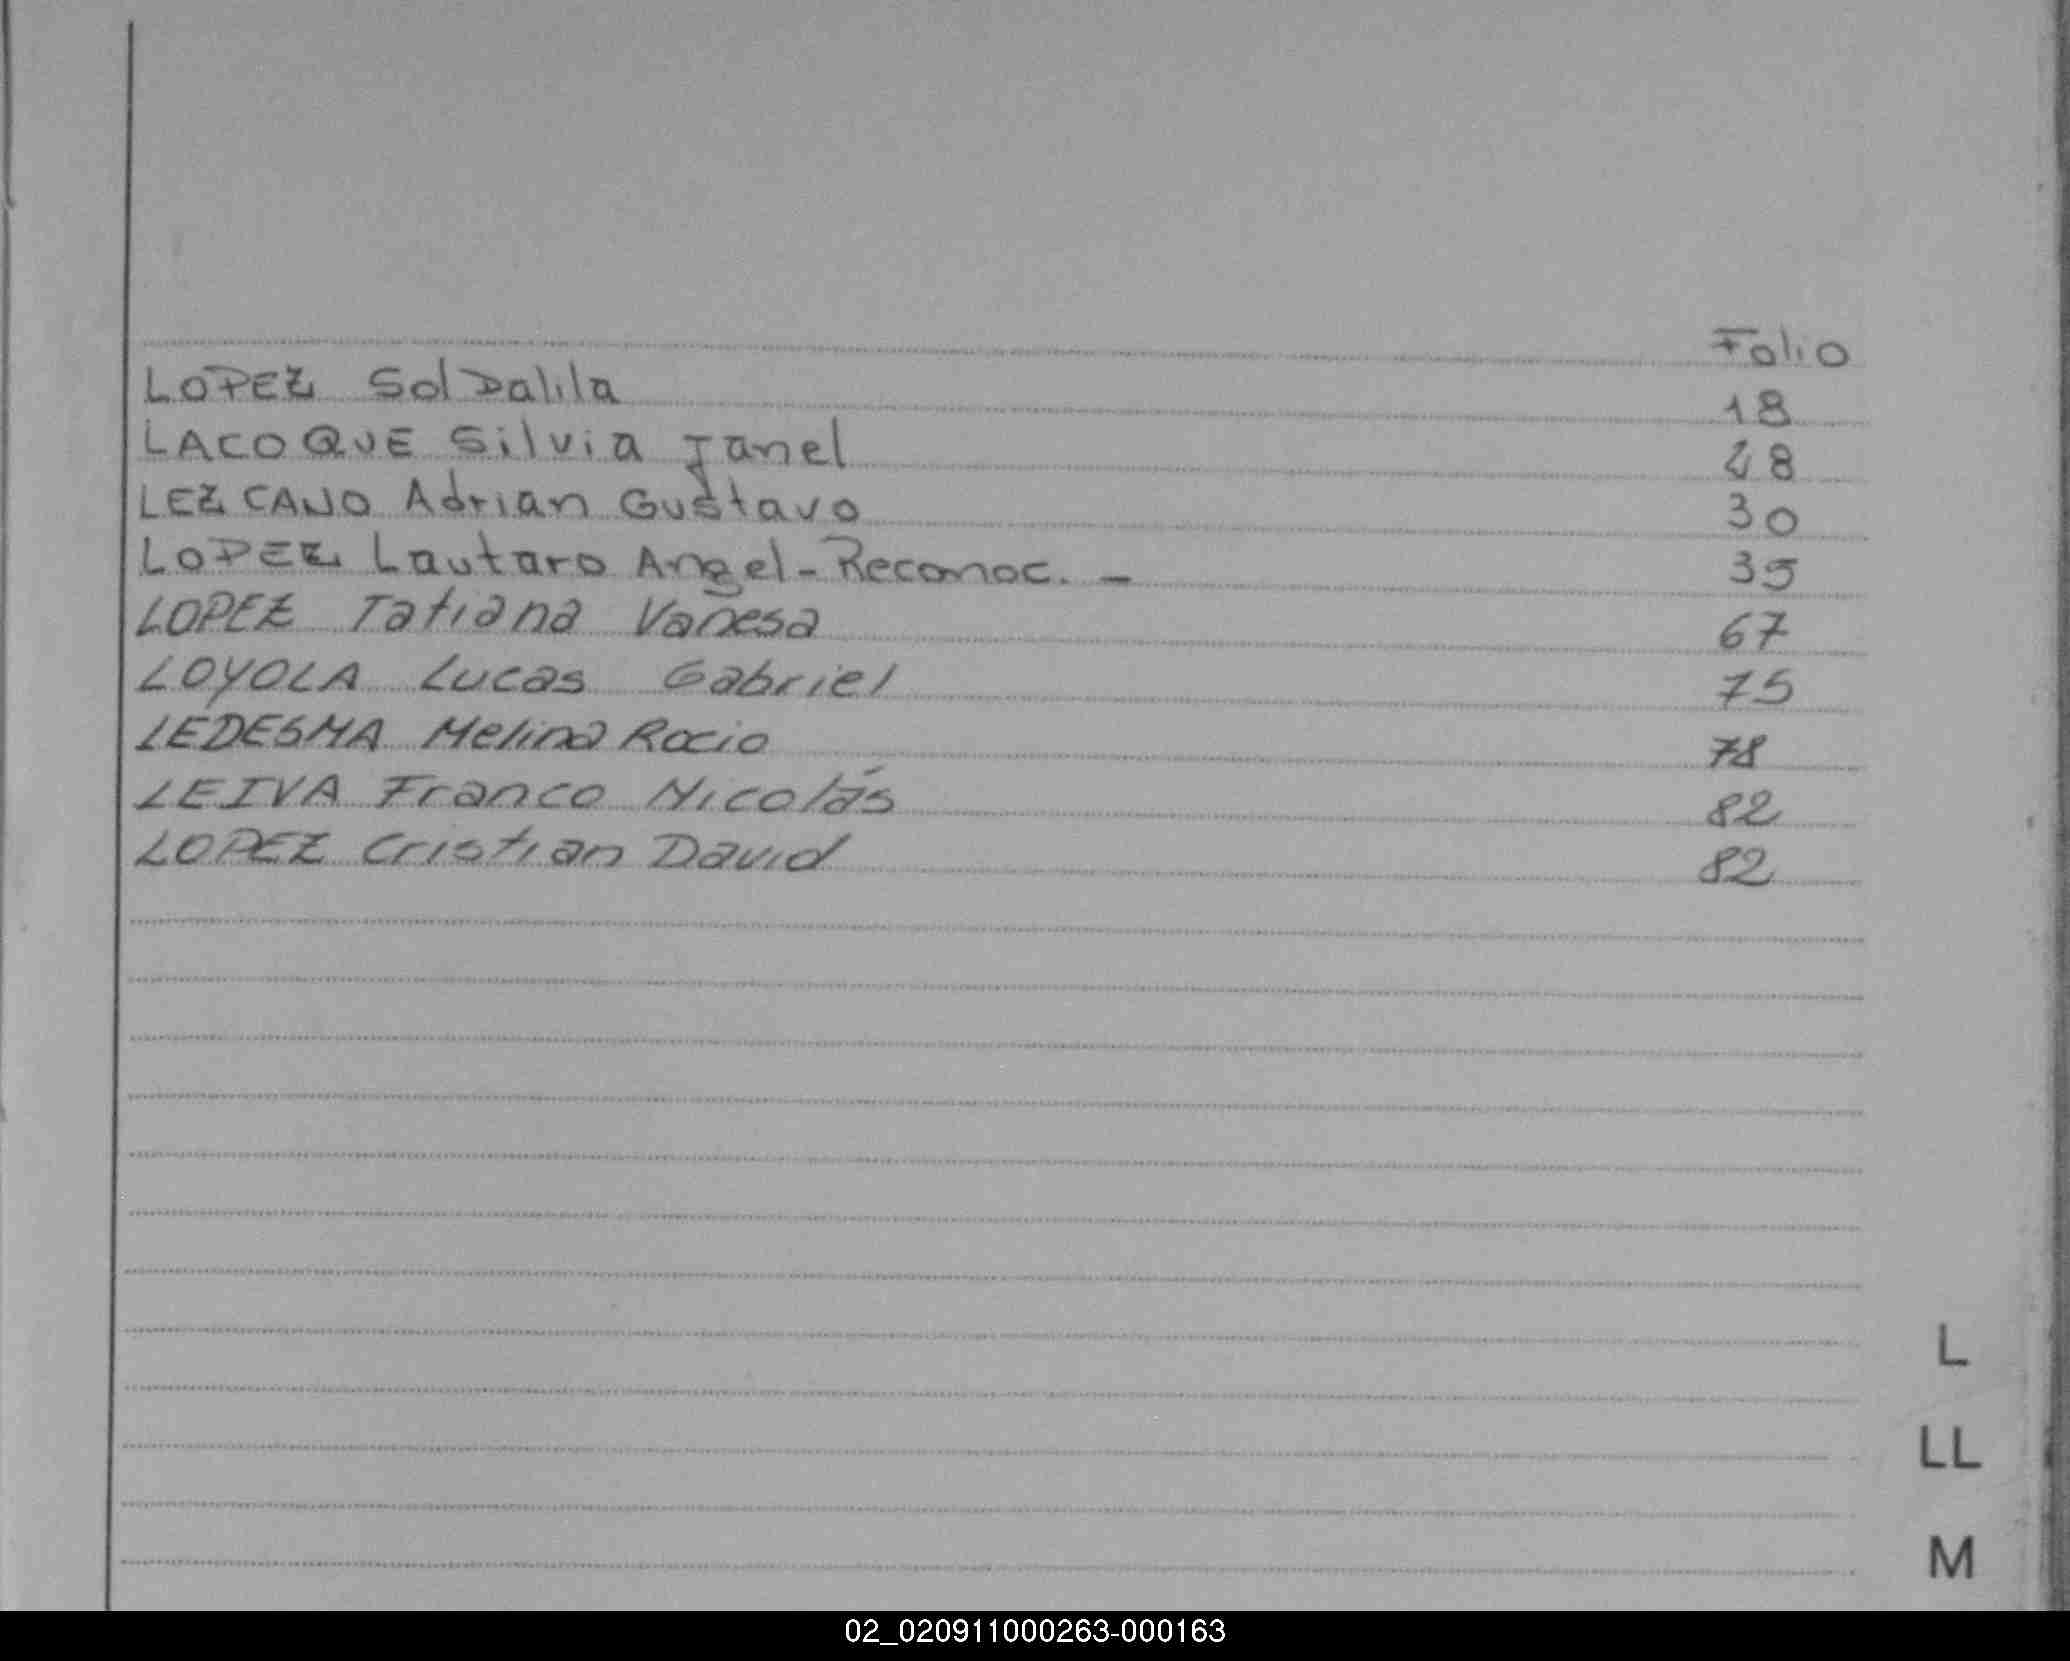 Folio
LOPEZ Sol Dalila 18
LACOQUE Silvia Janel 28
LEZCANO Adrian Gustavo 30
LOPEZ Lautaro Angel - Reconoc. - 35
LOPEZ Tatiana Vanesa 67
LOYOLA Lucas Gabriel 75
LEDESMA Melina Rocio 78
LEIVA Franco Nicolás 82
LOPEZ Cristian David 82
L
LL
M
02_020911000263-000163